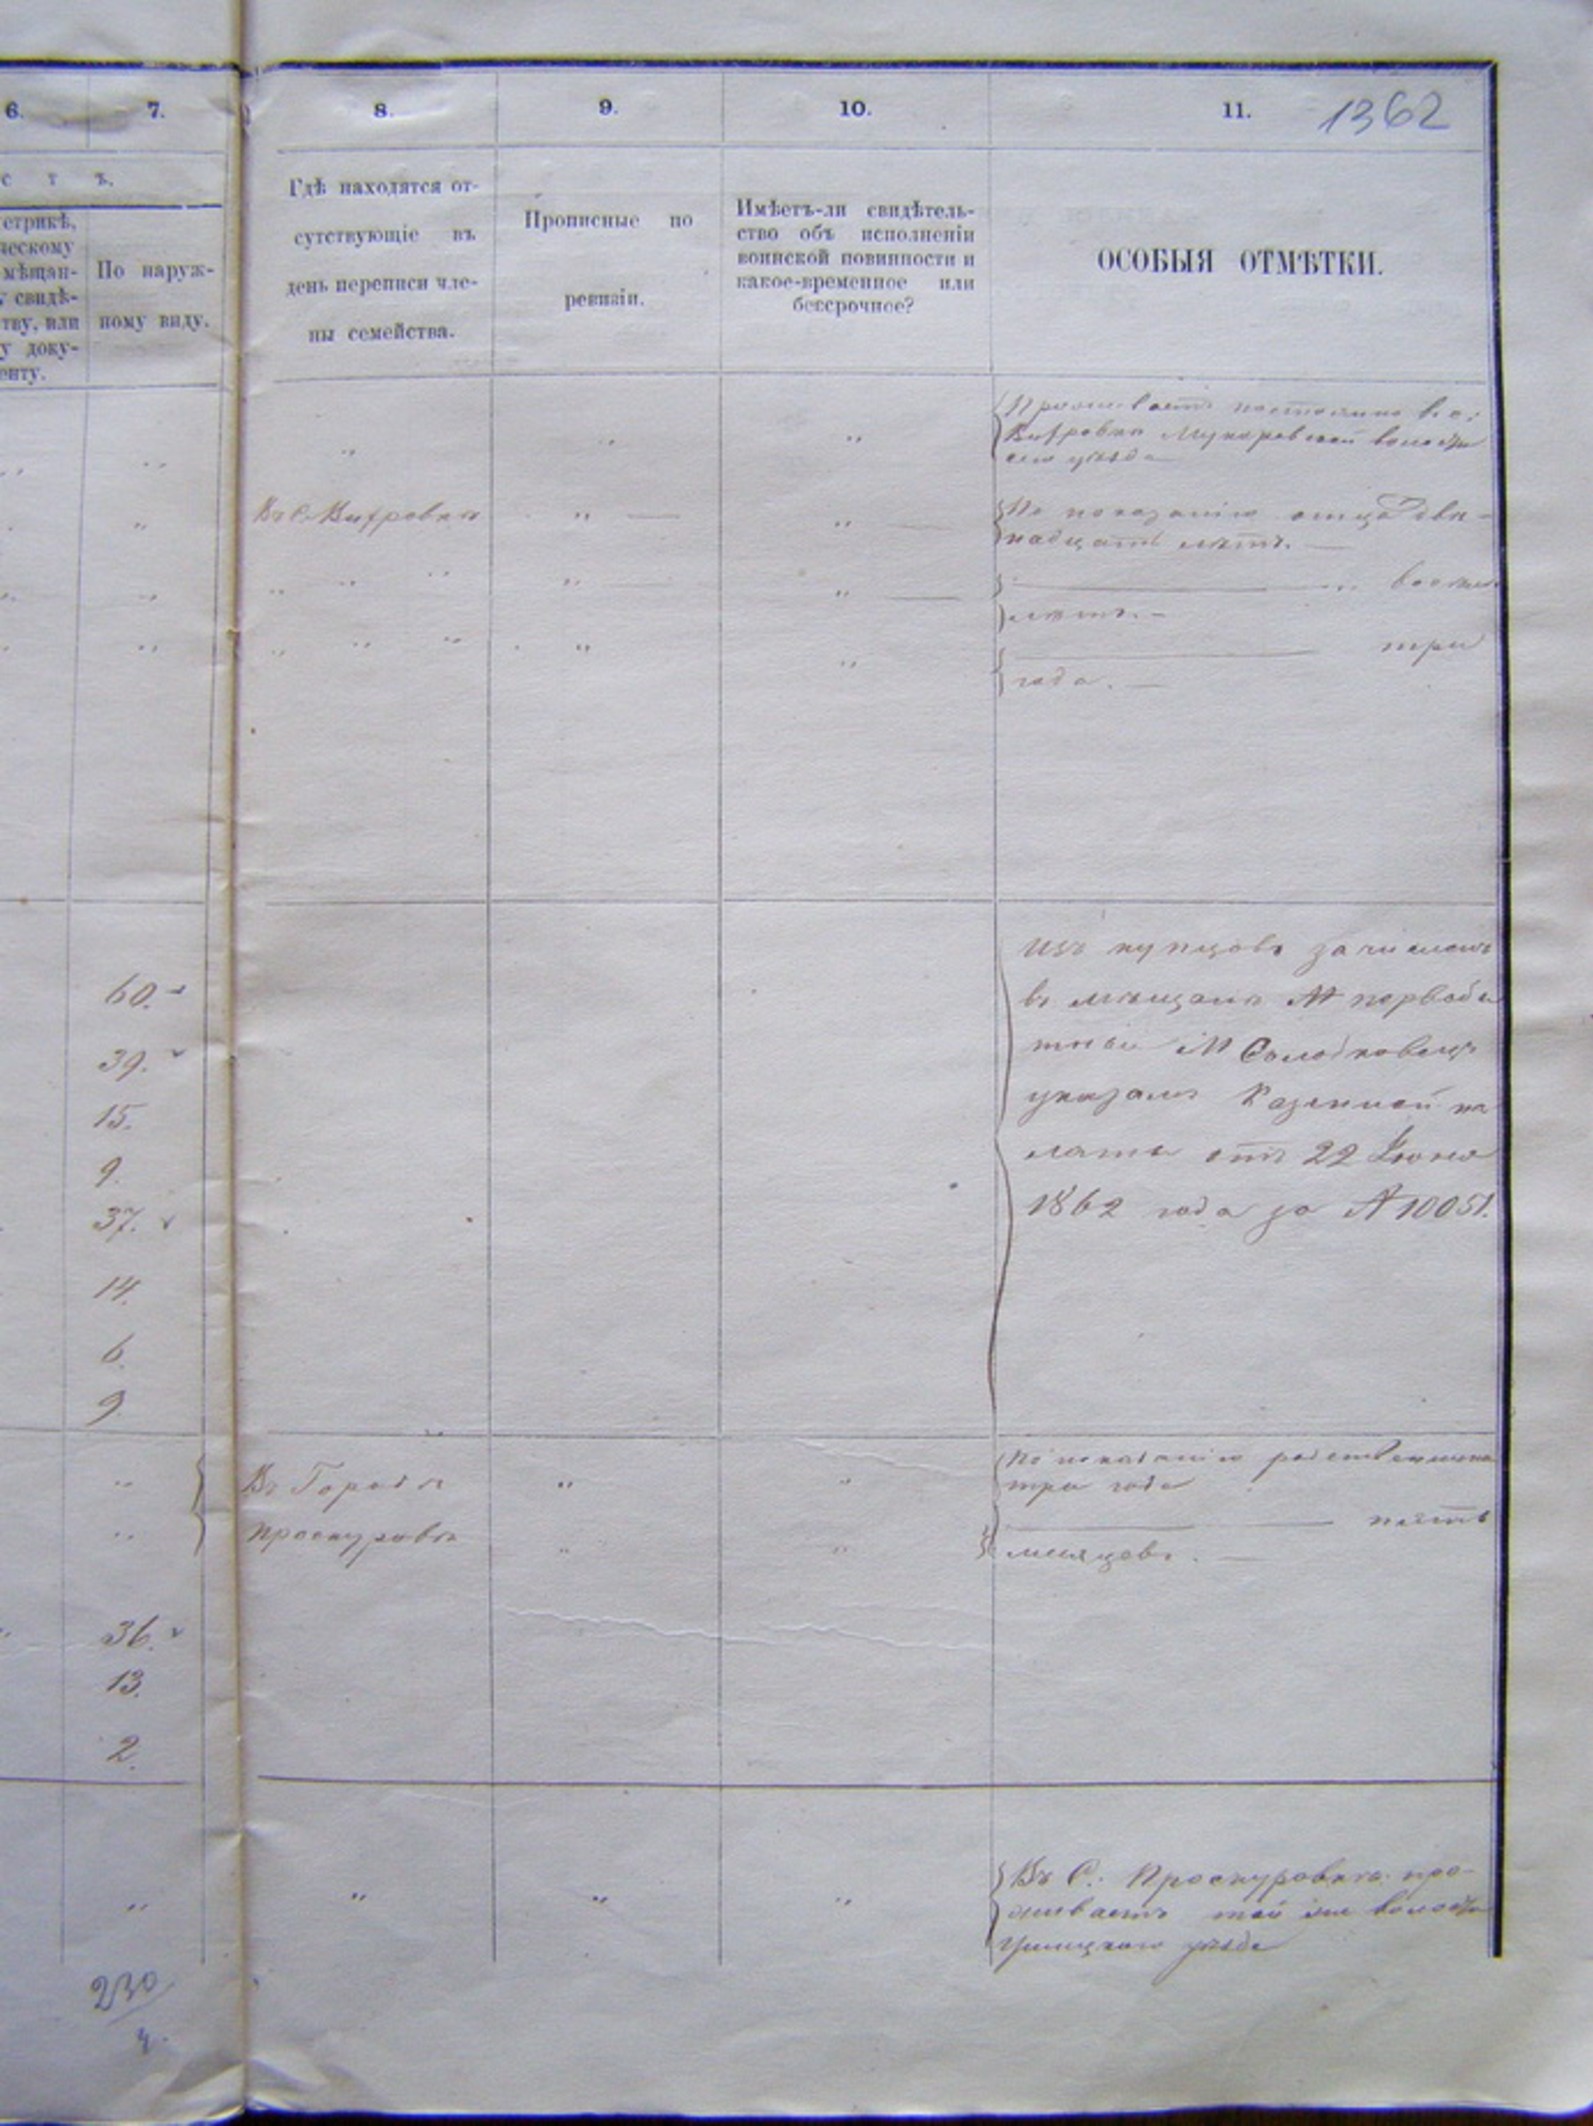 6.
7.
8.
9.
10.
11.
1362
с т ъ.
етрикѣ,
ческому
мѣщан-
у свидѣ-
тву, или
у доку-
енту.
По наруж-
ному виду.
Гдѣ находятся от-
сутствующіе въ
день переписи чле-
ны семейства.
Прописные по
ревизіи.
Имѣетъ-ли свидѣтель-
ство объ исполненіи
воинской повинности и
какое-временное или
бессрочное?
ОСОБЫЯ ОТМѢТКИ.
Проживаетъ постоянно въ с.
волости
сего уѣзда
Въ С.
По показанію отца два-
надцать лѣтъ. —
" " "
" восемь
лѣтъ. —
" " "
три
года. —
60.
39.
15.
9.
37.
14.
6.
9.
Изъ купцовъ зачисленъ
въ мѣщане
М Солодковецъ
указомъ Казенной па
латы отъ 22 Июня
1862 года за № 10051.
Въ Городѣ
Проскуровѣ
По показанію родственника
три года
пять
мѣсяцовъ. —
36.
13.
2.
Въ С. Проскуровкѣ про-
живаетъ той же волости
Ушицкаго уѣзда
230
4.